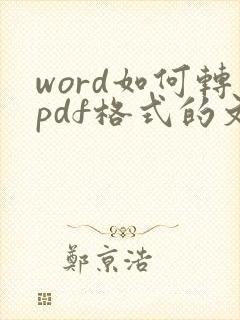 word如何轉
pdf格式的文
鄭京浩